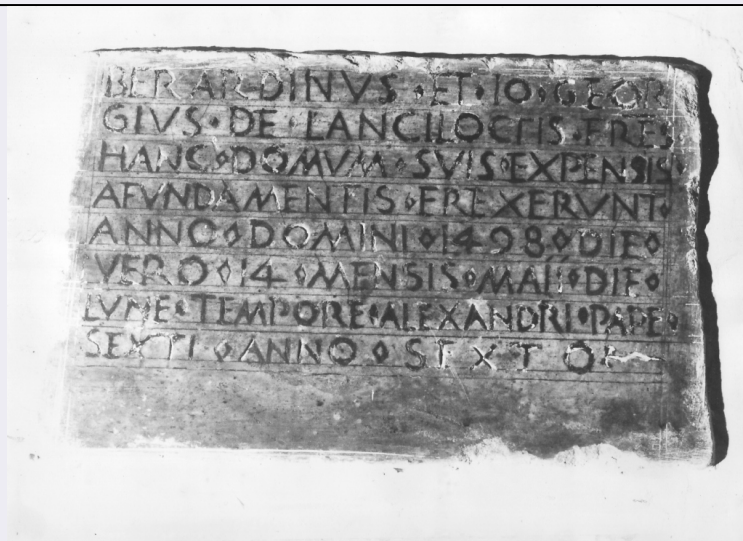 BERARDINVS · ET · IO · GEOR
GIVS · DE · LANCILOCTIS · FRES
HANC · DOMVM · SVIS · EXPENSIS ·
AFVNDAMENTIS · EREXERVNT ·
ANNO · DOMINI · 1498 · DIE ·
VERO · 14 · MENSIS · MAII · DIE ·
LVNE · TEMPORE · ALEXANDRI · PAPE ·
SEXTI · ANNO · SEXTO